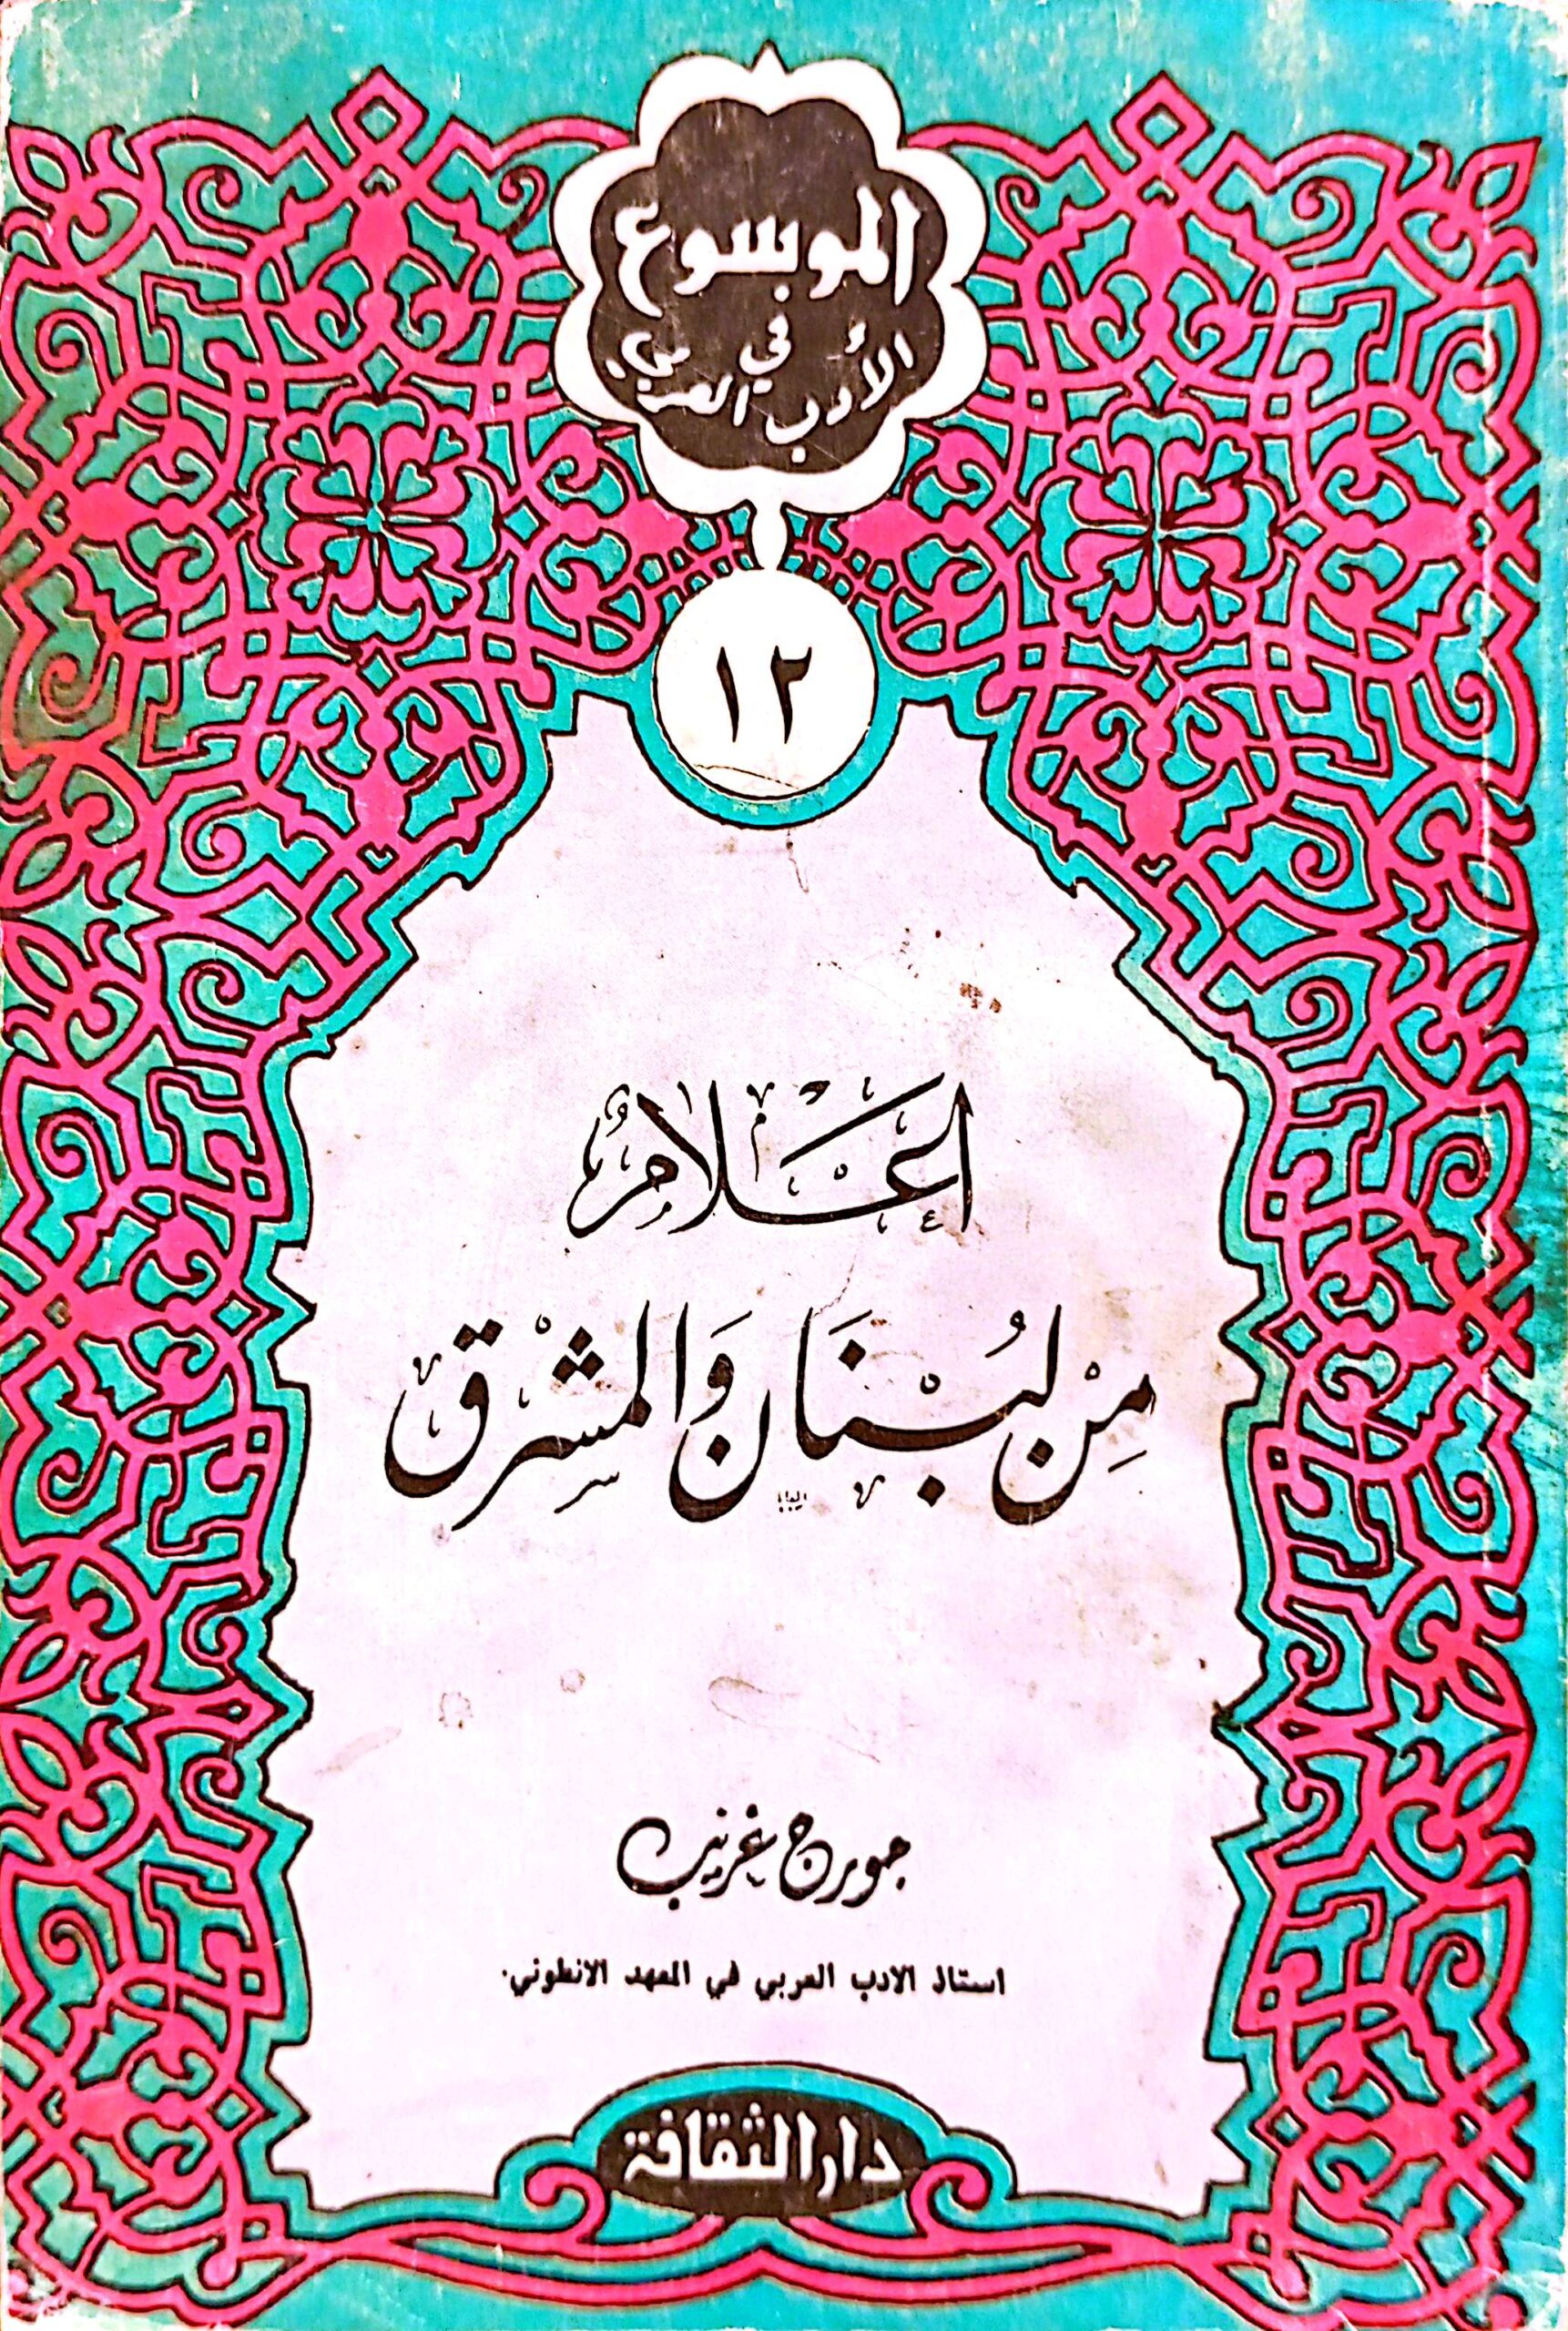 الموسوع
في
الأدب العربي
١٢
أعلامٌ
مِن لُبْنَان وَالمشْرق
جورج غريّب
استاذ الادب العربي في المعهد الانطوني.
دار الثقافة